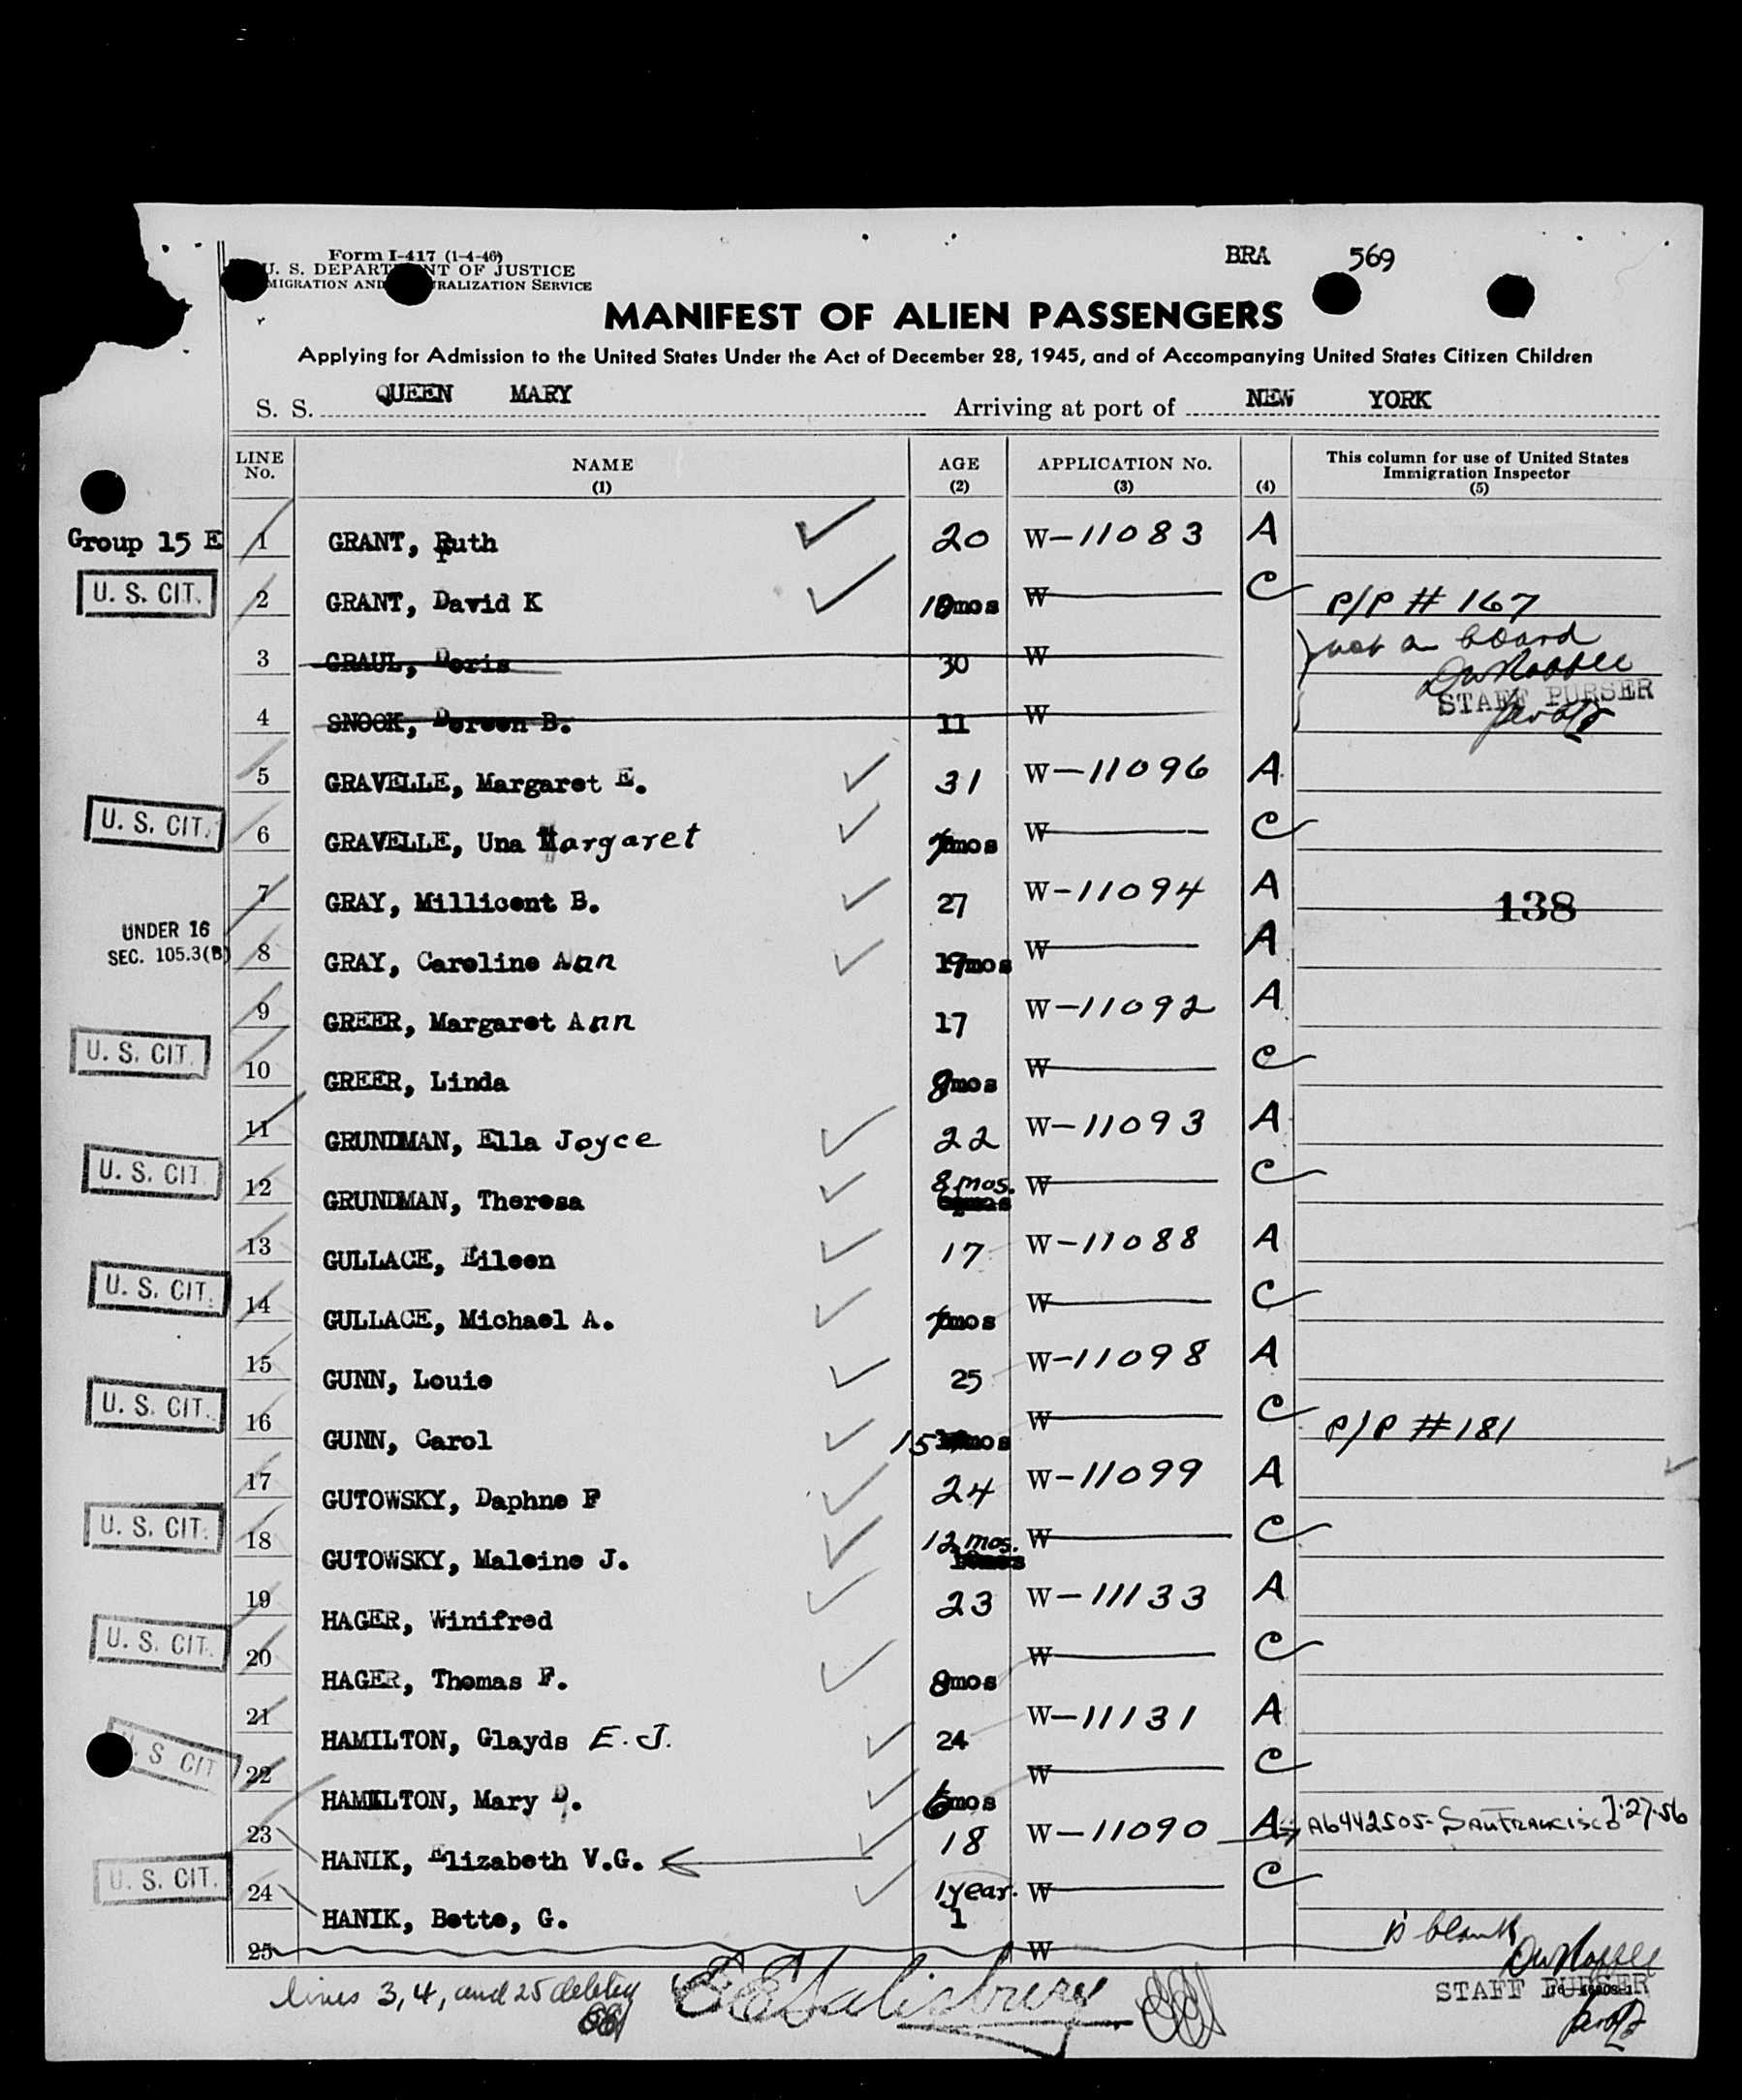 Form I-417 (1-4-46)
BRA 569
U. S. DEPART NT OF JUSTICE
MIGRATION AND RALIZATION SERVICE
MANIFEST OF ALIEN PASSENGERS
Applying for Admission to the United States Under the Act of December 28, 1945, and of Accompanying United States Citizen Children
S. S. QUEEN MARY Arriving at port of NEW YORK
LINE No. NAME (1) AGE (2) APPLICATION No. (3) (4) This column for use of United States Immigration Inspector (5)
Group 15 E 1 GRANT, Ruth 20 W-11083 A
U. S. CIT. 2 GRANT, David K 10mos W C P/P # 167
3 GRAUL, Doris 30 W not on board
STAFF PURSER
4 SNOOK, Doreen B. 11 W
5 GRAVELLE, Margaret E. 31 W-11096 A
U. S. CIT. 6 GRAVELLE, Una Margaret 7mos W C
7 GRAY, Millicent B. 27 W-11094 A 138
UNDER 16
SEC. 105.3(B) 8 GRAY, Caroline Ann 19mos W A
9 GREER, Margaret Ann 17 W-11092 A
U. S. CIT. 10 GREER, Linda 8mos W C
11 GRUNDMAN, Ella Joyce 22 W-11093 A
U. S. CIT. 12 GRUNDMAN, Theresa 8 mos. W C
13 GULLACE, Eileen 17 W-11088 A
U. S. CIT. 14 GULLACE, Michael A. 7mos W C
15 GUNN, Louie 25 W-11098 A
U. S. CIT. 16 GUNN, Carol 15mos W C P/P #181
17 GUTOWSKY, Daphne F 24 W-11099 A
U. S. CIT. 18 GUTOWSKY, Maleine J. 12 mos. W C
19 HAGER, Winifred 23 W-11133 A
U. S. CIT. 20 HAGER, Thomas F. 8mos W C
21 HAMILTON, Glayds E. J. 24 W-11131 A
S CIT 22 HAMILTON, Mary D. 6mos W C
23 HANIK, Elizabeth V.G. 18 W-11090 A A6442505-SAN FRANCISCO 7-27-56
U. S. CIT. 24 HANIK, Bette, G. 1 year. 1 W C
25 W is blank
lines 3, 4, and 25 deleted
E E Salisbury
STAFF PURSER